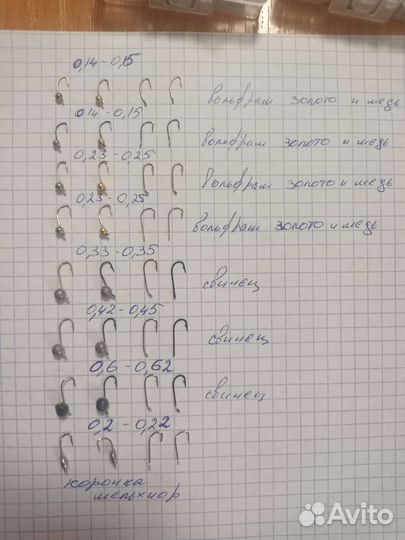 0,14-0,15
вольфрам золото и медь
0,14-0,15
вольфрам золото и медь
0,23-0,25
вольфрам золото и медь
0,23-0,25
вольфрам золото и медь
0,33-0,35
свинец
0,42-0,45
свинец
0,6-0,62
свинец
0,2-0,22
коронка
мельхиор
Avito